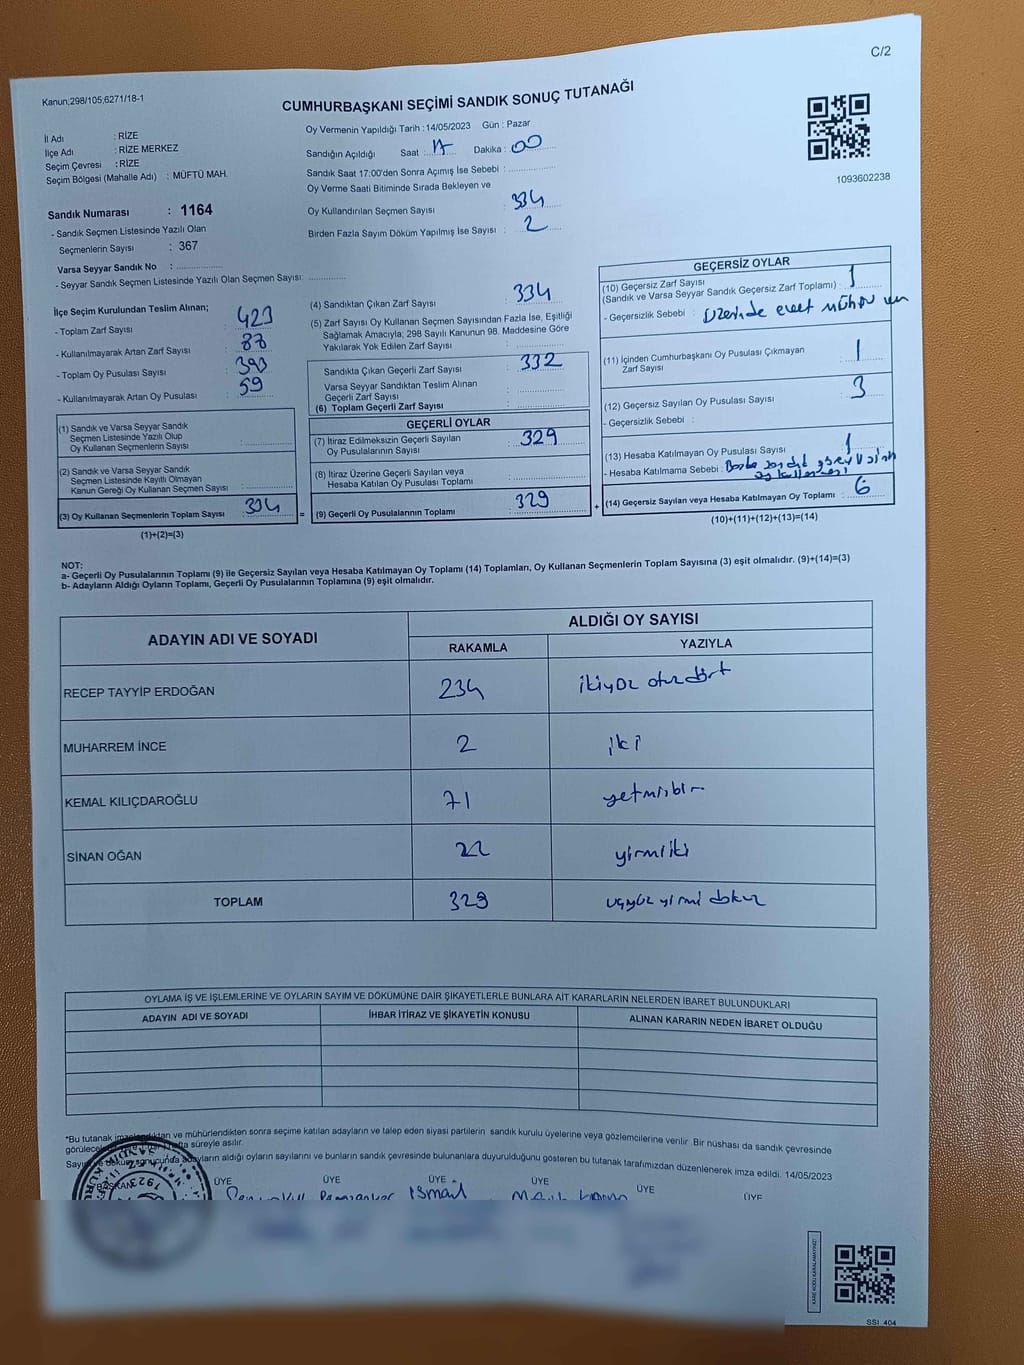 C/2
Kanun;298/105,6271/18-1
CUMHURBAŞKANI SEÇİMİ SANDIK SONUÇ TUTANAĞI
1093602238
İl Adı : RİZE
İlçe Adı : RİZE MERKEZ
Seçim Çevresi : RİZE
Seçim Bölgesi (Mahalle Adı) : MÜFTÜ MAH.
Sandık Numarası : 1164
- Sandık Seçmen Listesinde Yazılı Olan
Seçmenlerin Sayısı : 367
Varsa Seyyar Sandık No :
- Seyyar Sandık Seçmen Listesinde Yazılı Olan Seçmen Sayısı:
Oy Vermenin Yapıldığı Tarih : 14/05/2023 Gün : Pazar
Sandığın Açıldığı Saat : 17 Dakika : 00
Sandık Saat 17:00'den Sonra Açımış İse Sebebi :
Oy Verme Saati Bitiminde Sırada Bekleyen ve
Oy Kullandırılan Seçmen Sayısı : 334
Birden Fazla Sayım Döküm Yapılmış İse Sayısı : 2
İlçe Seçim Kurulundan Teslim Alınan;
- Toplam Zarf Sayısı : 423
- Kullanılmayarak Artan Zarf Sayısı :
- Toplam Oy Pusulası Sayısı : 393
- Kullanılmayarak Artan Oy Pusulası : 59
(1) Sandık ve Varsa Seyyar Sandık
Seçmen Listesinde Yazılı Olup
Oy Kullanan Seçmenlerin Sayısı :
(2) Sandık ve Varsa Seyyar Sandık
Seçmen Listesinde Kayıtlı Olmayan
Kanun Gereği Oy Kullanan Seçmen Sayısı :
(3) Oy Kullanan Seçmenlerin Toplam Sayısı : 334 =
(1)+(2)=(3)
(4) Sandıktan Çıkan Zarf Sayısı : 334
(5) Zarf Sayısı Oy Kullanan Seçmen Sayısından Fazla İse, Eşitliği
Sağlamak Amacıyla; 298 Sayılı Kanunun 98. Maddesine Göre
Yakılarak Yok Edilen Zarf Sayısı :
Sandıkta Çıkan Geçerli Zarf Sayısı : 332
Varsa Seyyar Sandıktan Teslim Alınan
Geçerli Zarf Sayısı :
(6) Toplam Geçerli Zarf Sayısı :
GEÇERLİ OYLAR
(7) İtiraz Edilmeksizin Geçerli Sayılan
Oy Pusulalarının Sayısı : 329
(8) İtiraz Üzerine Geçerli Sayılan veya
Hesaba Katılan Oy Pusulası Toplamı :
(9) Geçerli Oy Pusulalarının Toplamı : 329 +
GEÇERSİZ OYLAR
(10) Geçersiz Zarf Sayısı
(Sandık ve Varsa Seyyar Sandık Geçersiz Zarf Toplamı) : 1
- Geçersizlik Sebebi : üzerinde evet mührü
(11) İçinden Cumhurbaşkanı Oy Pusulası Çıkmayan
Zarf Sayısı : 1
(12) Geçersiz Sayılan Oy Pusulası Sayısı : 3
- Geçersizlik Sebebi :
(13) Hesaba Katılmayan Oy Pusulası Sayısı : 1
- Hesaba Katılmama Sebebi :
(14) Geçersiz Sayılan veya Hesaba Katılmayan Oy Toplamı : 6
(10)+(11)+(12)+(13)=(14)
NOT:
a- Geçerli Oy Pusulalarının Toplamı (9) ile Geçersiz Sayılan veya Hesaba Katılmayan Oy Toplamı (14) Toplamları, Oy Kullanan Seçmenlerin Toplam Sayısına (3) eşit olmalıdır. (9)+(14)=(3)
b- Adayların Aldığı Oyların Toplamı, Geçerli Oy Pusulalarının Toplamına (9) eşit olmalıdır.
ADAYIN ADI VE SOYADI ALDIĞI OY SAYISI
RAKAMLA YAZIYLA
RECEP TAYYİP ERDOĞAN 234 ikiyüz otuzdört
MUHARREM İNCE 2 iki
KEMAL KILIÇDAROĞLU 71 yetmişbir
SİNAN OĞAN 22 yirmiiki
TOPLAM 329 üçyüz yirmi dokuz
OYLAMA İŞ VE İŞLEMLERİNE VE OYLARIN SAYIM VE DÖKÜMÜNE DAİR ŞİKAYETLERLE BUNLARA AİT KARARLARIN NELERDEN İBARET BULUNDUKLARI
ADAYIN ADI VE SOYADI İHBAR İTİRAZ VE ŞİKAYETİN KONUSU ALINAN KARARIN NEDEN İBARET OLDUĞU
*Bu tutanak imzalandıktan ve mühürlendikten sonra seçime katılan adayların ve talep eden siyasi partilerin sandık kurulu üyelerine veya gözlemcilerine verilir. Bir nüshası da sandık çevresinde
görülecek süreyle asılır.
Sayım ve döküm sonucunda adayların aldığı oyların sayılarını ve bunların sandık çevresinde bulunanlara duyurulduğunu gösteren bu tutanak tarafımızdan düzenlenerek imza edildi. 14/05/2023
BAŞKAN ÜYE ÜYE ÜYE ÜYE ÜYE ÜYE
İsmail
KARE KODU KARALAMAYINIZ!
SSI_404